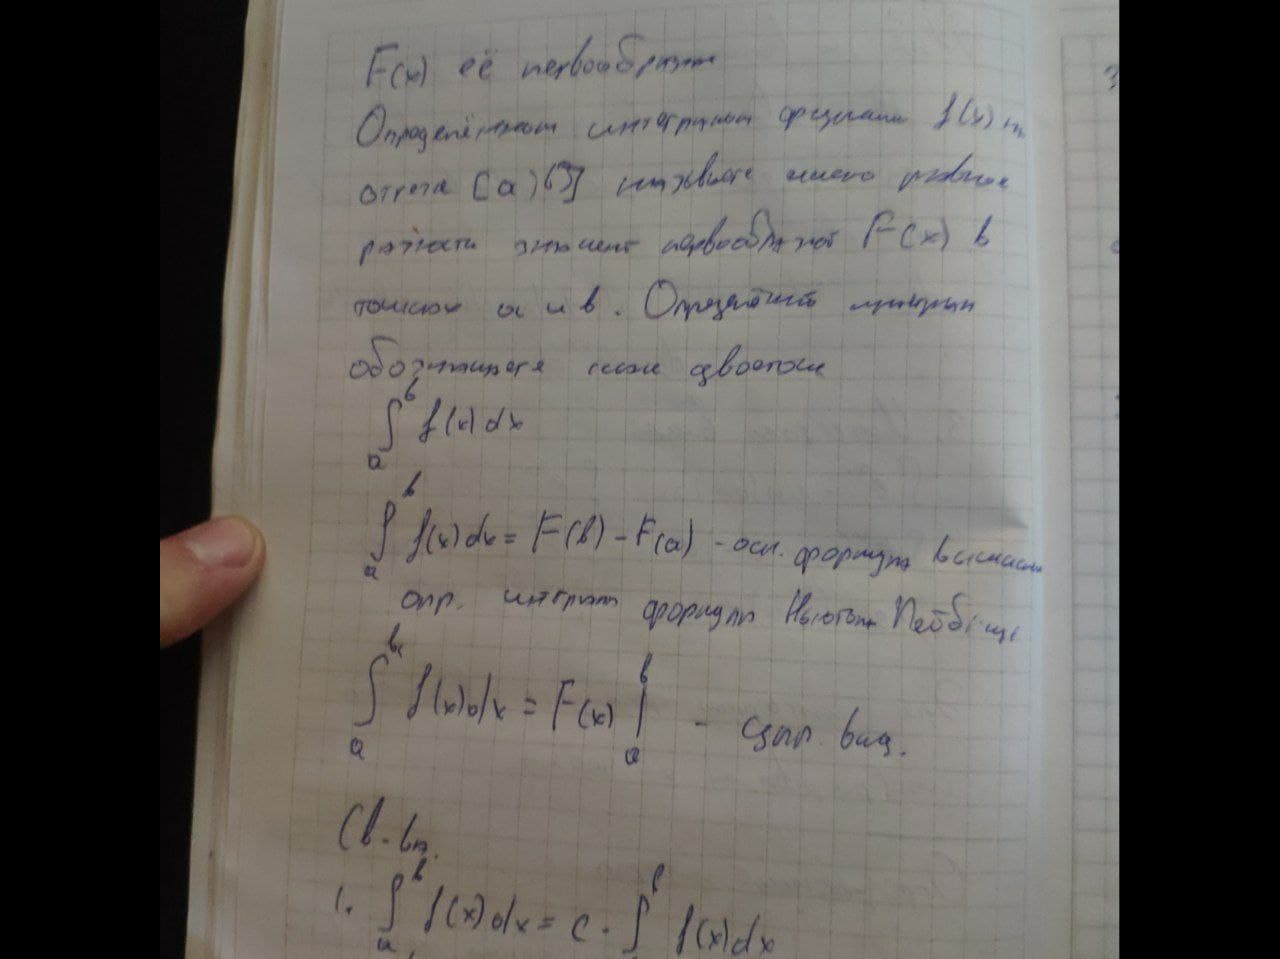 F(x) её первообразная
Определённым интегралом функции f(x) на
отрезке [a; b] называется число равное
разности значений первообразной F(x) в
точках a и b. Определённый интеграл
обозначается
∫ₐᵇ f(x) dx
∫ₐᵇ f(x) dx = F(b) - F(a) - осн. формула вычислен
опр. интеграла формула Ньютона Лейбница
∫ₐᵇ f(x) dx = F(x) |ₐᵇ -
Св-ва.
1. ∫ₐᵇ f(x) dx = c · ∫ f(x) dx